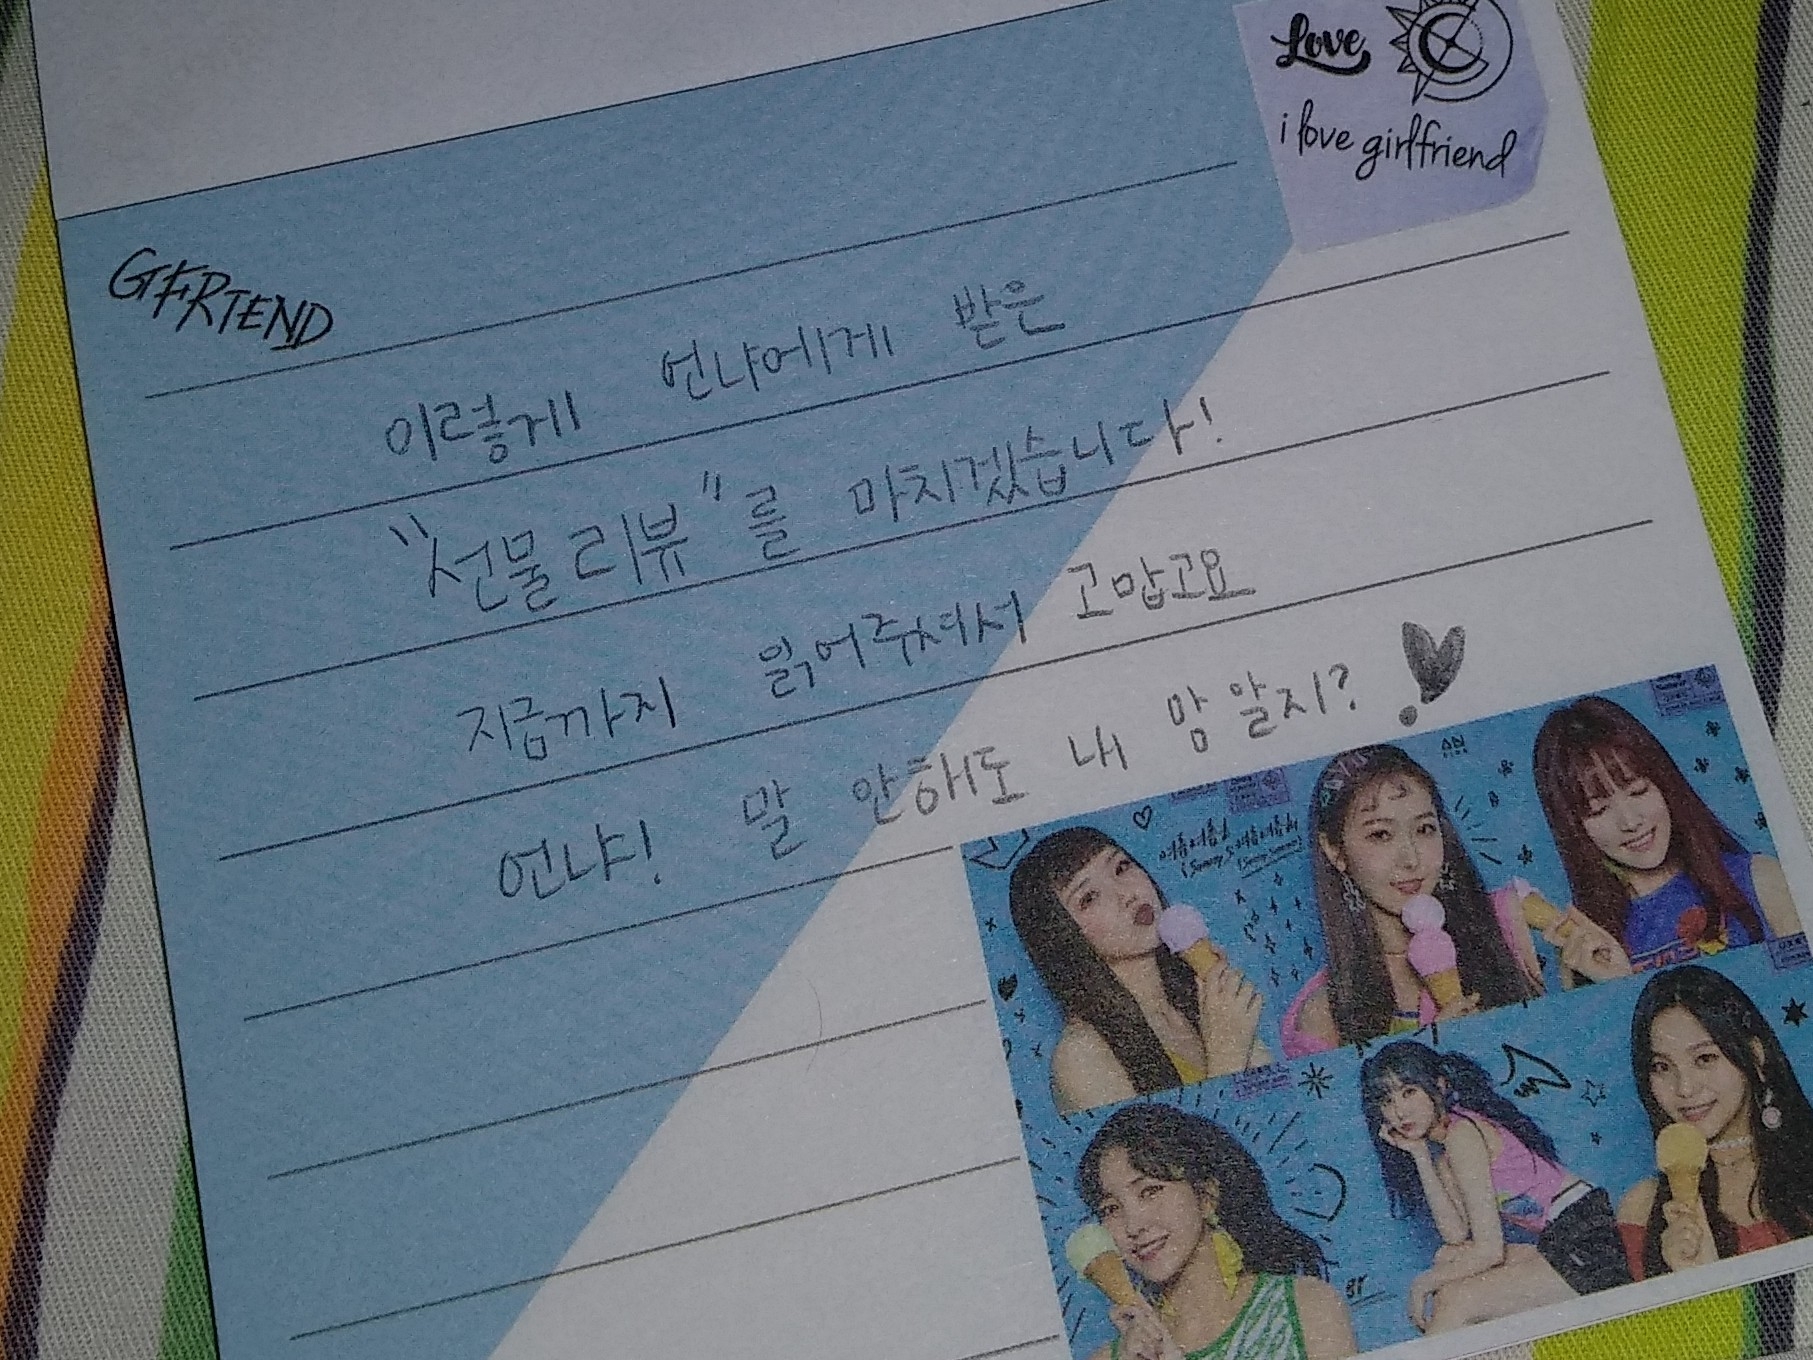 Love
i love girlfriend
GFRIEND
이렇게 언니에게 받은
"선물 리뷰"를 마치겠습니다!
지금까지 읽어주셔서 고맙고요
언냐! 말 안해도 내 맘 알지?
여름여름해
(Sunny Summer)